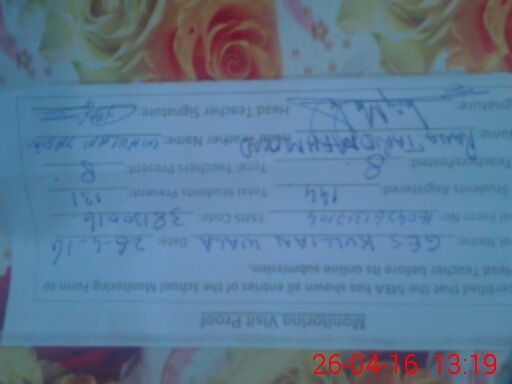 Monitoring Visit Proof
certified that the MEA has shown all entries of the School Monitoring Form to
Head Teacher before its online submission.
Name: GES KULLIAN WALA Date: 26-4-16
Form No: EMIS Code:
Students Registered: 144 Total Students Present: 131
Teachers Posted: 8 Total Teachers Present: 8
Name: RANA Head Teacher Name:
Signature: Head Teacher Signature:
26-04-16 13:19